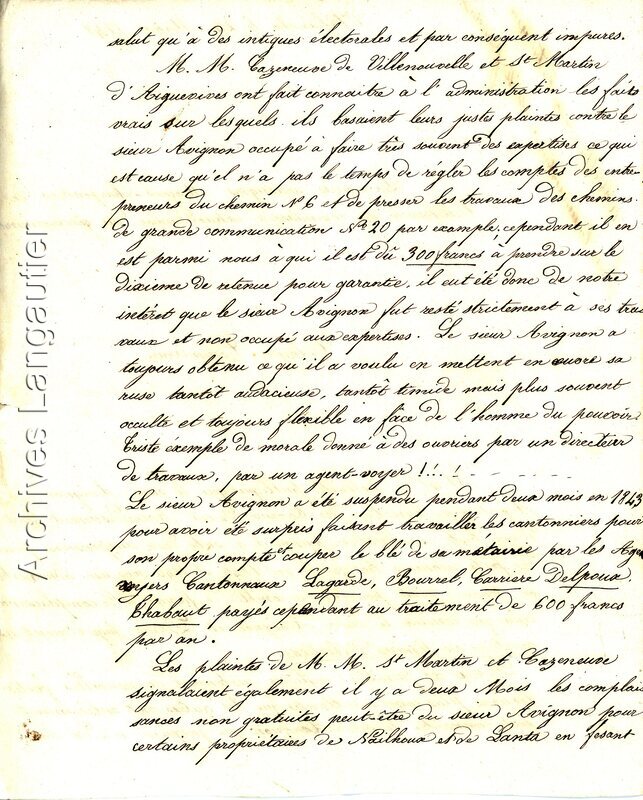 salut qu'à des intigues électorales et par conséquent impures.
M. M. Cazeneuve de Villenouvelle et St Martin
d'Aiguevives ont fait connaitre à l'administration les faits
vrais sur lesquels ils basaient leurs justes plaintes contre le
sieur Avignon occupé à faire très souvent des expertises ce qui
est cause qu'el n'a pas le temps de régler les comptes des entre-
preneurs du chemin No 6 et de presser les travaux des chemins
de grande communication No 20 par exemple, cependant il en
est parmi nous à qui il est dû 300 francs à prendre sur le
dixième de retenue pour garantie, il eut été donc de notre
intéret que le sieur Avignon fut resté strictement à ses tra
vaux et non occupé aux expertises. Le sieur Avignon a
toujours obtenu ce qu'il a voulu en mettent en œuvre sa
ruse tantôt audacieuse, tantôt timide mais plus souvent
occulte et toujours flexible en face de l'homme du pouvoir
Triste exemple de morale donné à des ouvriers par un directeur
de travaux, par un agent-voyer !!..!
Le sieur Avignon a été suspendu pendant deux mois en 1843
pour avoir été surpris faisant travailler les cantonniers pour
son propre compte et couper le blé de sa métairie par les Age
voyers Cantonnaux Lagarde, Bourrel, Carriere Delpoux,
Chabaut payés cependant au traitement de 600 francs
par an.
Les plaintes de M. M. St Martin et Cazeneuve
signalaient également il y a deux Mois les complai
sances non gratuites peut-être du sieur Avignon pour
certains propriétaires de Nailhoux et de Lanta en fesant
Archives Langautier